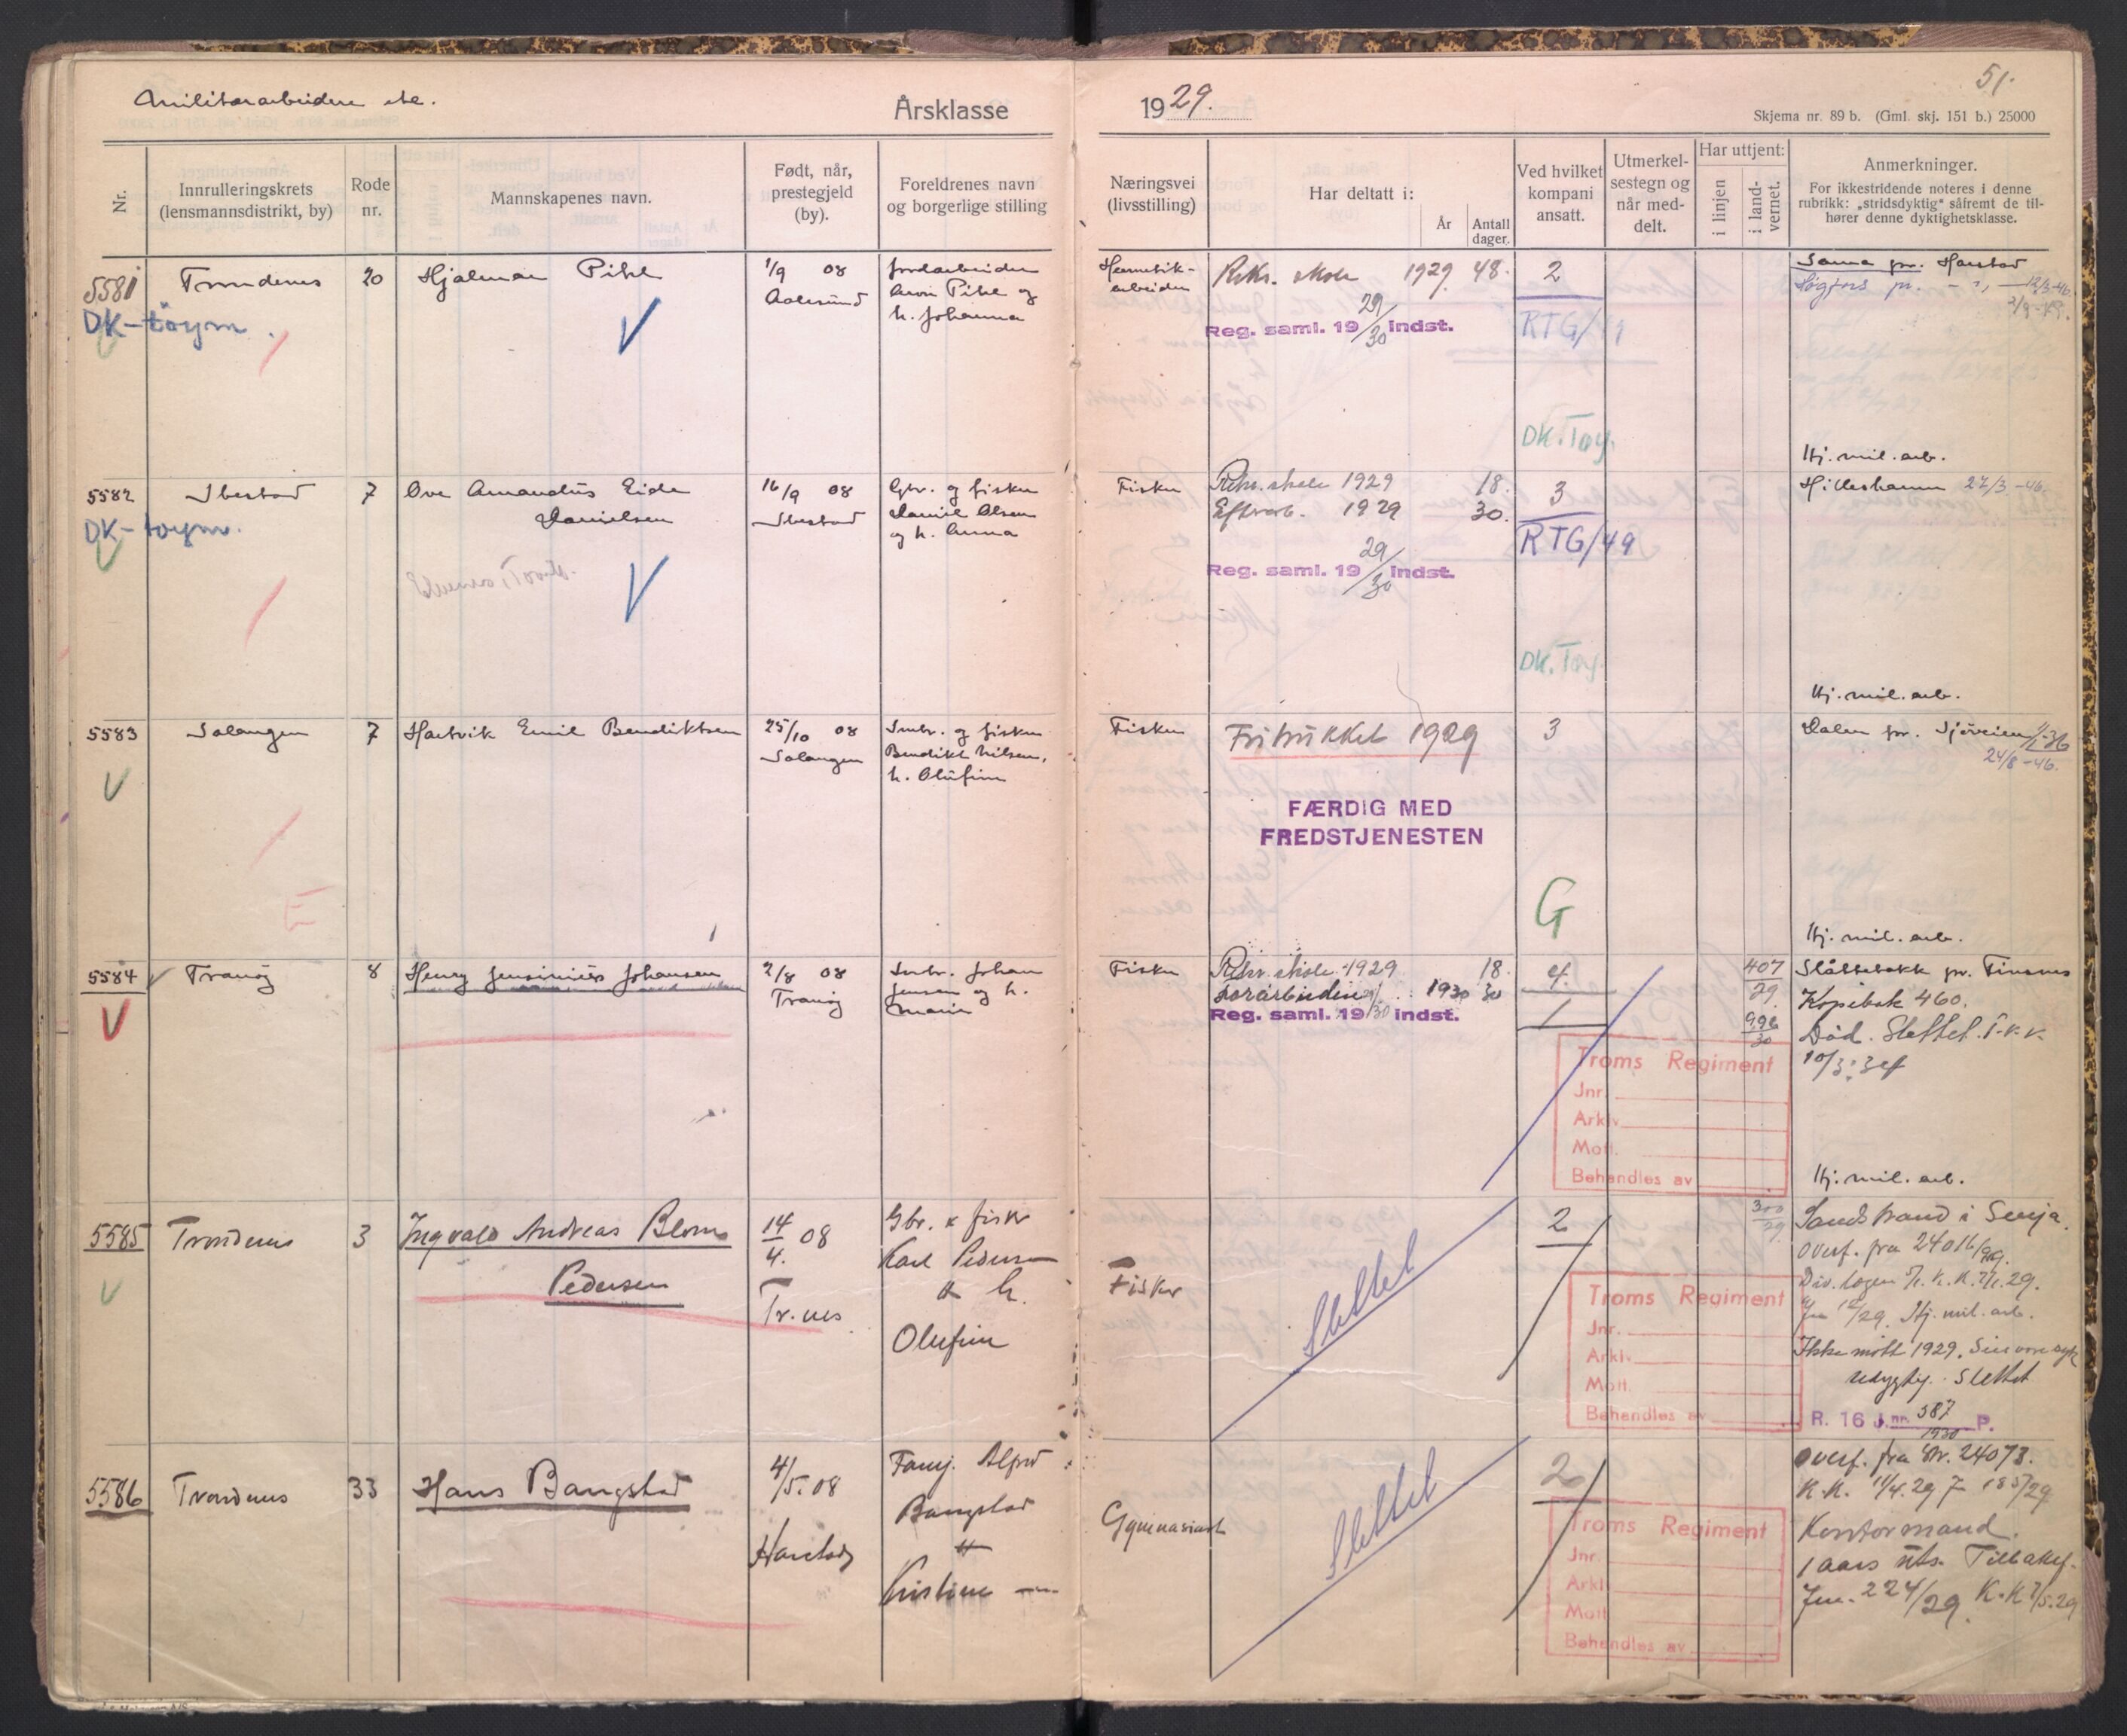 Militærarbeidere etc.
Årsklasse
1929.
51.
Skjema nr. 89 b. (Gml. skj. 151 b.) 25000
Nr.
Innrulleringskrets
(lensmannsdistrikt, by)
Rode
nr.
Mannskapenes navn.
Født, når,
prestegjeld
(by).
Foreldrenes navn
og borgerlige stilling
Næringsvei
(livsstilling)
Har deltatt i:
År
Antall
dager.
Ved hvilket
kompani
ansatt.
Utmerkel-
sestegn og
når med-
delt.
Har uttjent:
i linjen
i land-
vernet.
Anmerkninger.
For ikkestridende noteres i denne
rubrikk: „stridsdyktig" såfremt de til-
hører denne dyktighetsklasse.
5581
Trondenes
20
Hjalmar Pihl
1/9 08
Aalesund
Jordarbeider
Aron Pihl og
h. Johanna
Hermetik-
arbeider
Rekr. skole 1929 48.
Reg. saml. 19 29/30 indst.
2
RTG/49
DK. Tøy.
Sama pr. Harstad
Høgfors pr. - " - 12/3-46.
DK-tøym.
Hj. mil. arb.
5582
Ibestad
7
Ove Amandus Eide
Danielsen
16/9 08
Ibestad
Gbr. og fisker
Daniel Olsen
og h. Anna
Fisker
Rekr. skole 1929 18.
Eftrarb. 1929 30.
Reg. saml. 19 29/30 indst.
3
RTG/49
DK. Tøy.
Hilleshamn 27/3-46.
DK-tøym.
Hj. mil. arb.
5583
Salangen
7
Hartvik Emil Bendiktsen
25/10 08
Salangen
Småbr. og fisker
Bendikt Nilsen,
h. Olufine
Fisker
Fritrukket 1929
FÆRDIG MED
FREDSTJENESTEN
3
G
Dalen pr. Sjøveien
24/8-46.
E
Hj. mil. arb.
5584
Tranøy
8
Henry Jensinius Johansen
2/8 08
Tranøy
Småbr. Johan
Jensen og h.
Marie
Fisker
Rekr. skole 1929 18.
Forarbeidere 1930 30
Reg. saml. 19 /30 indst.
4.
1
407
29.
996
30
Slåttebakk pr. Finsnes
Kopibok 460.
Død. Slettet. T.K.K.
10/3.34
Troms Regiment
Jnr.
Arkiv
Mott.
Behandles av
Hj. mil. arb.
5585
Trondenes
3
Ingvald Andreas Blom
Pedersen
14/4. 08
Tr.nes
Gbr. & fisker
Karl Pedersen
& h.
Olufine
Fisker
Slettet
2
300
29
Sandstrand i Senja.
Overf. fra 24016/29.
Jnr 12/29. Hj. mil. arb.
Ikke møtt 1929.
udygtig. Slettet
R. 16 J.nr. 387/1930 P.
Troms Regiment
Jnr.
Arkiv.
Mott.
Behandles av
5586
Trondenes
33
Hans Bangstad
4/5. 08
Harstad
Fanj. Alfred
Bangstad
&
Kristine —
Gymnasiast
Slettet
2
Overf. fra Nr. 24073.
K.K. 11/4.29 J 185/29
Kontormand.
1 aars uts. Tilbakef.
Jnr. 224/29. K.K 7/5.29
Troms Regiment
Jnr.
Arkiv
Mott.
Behandles av